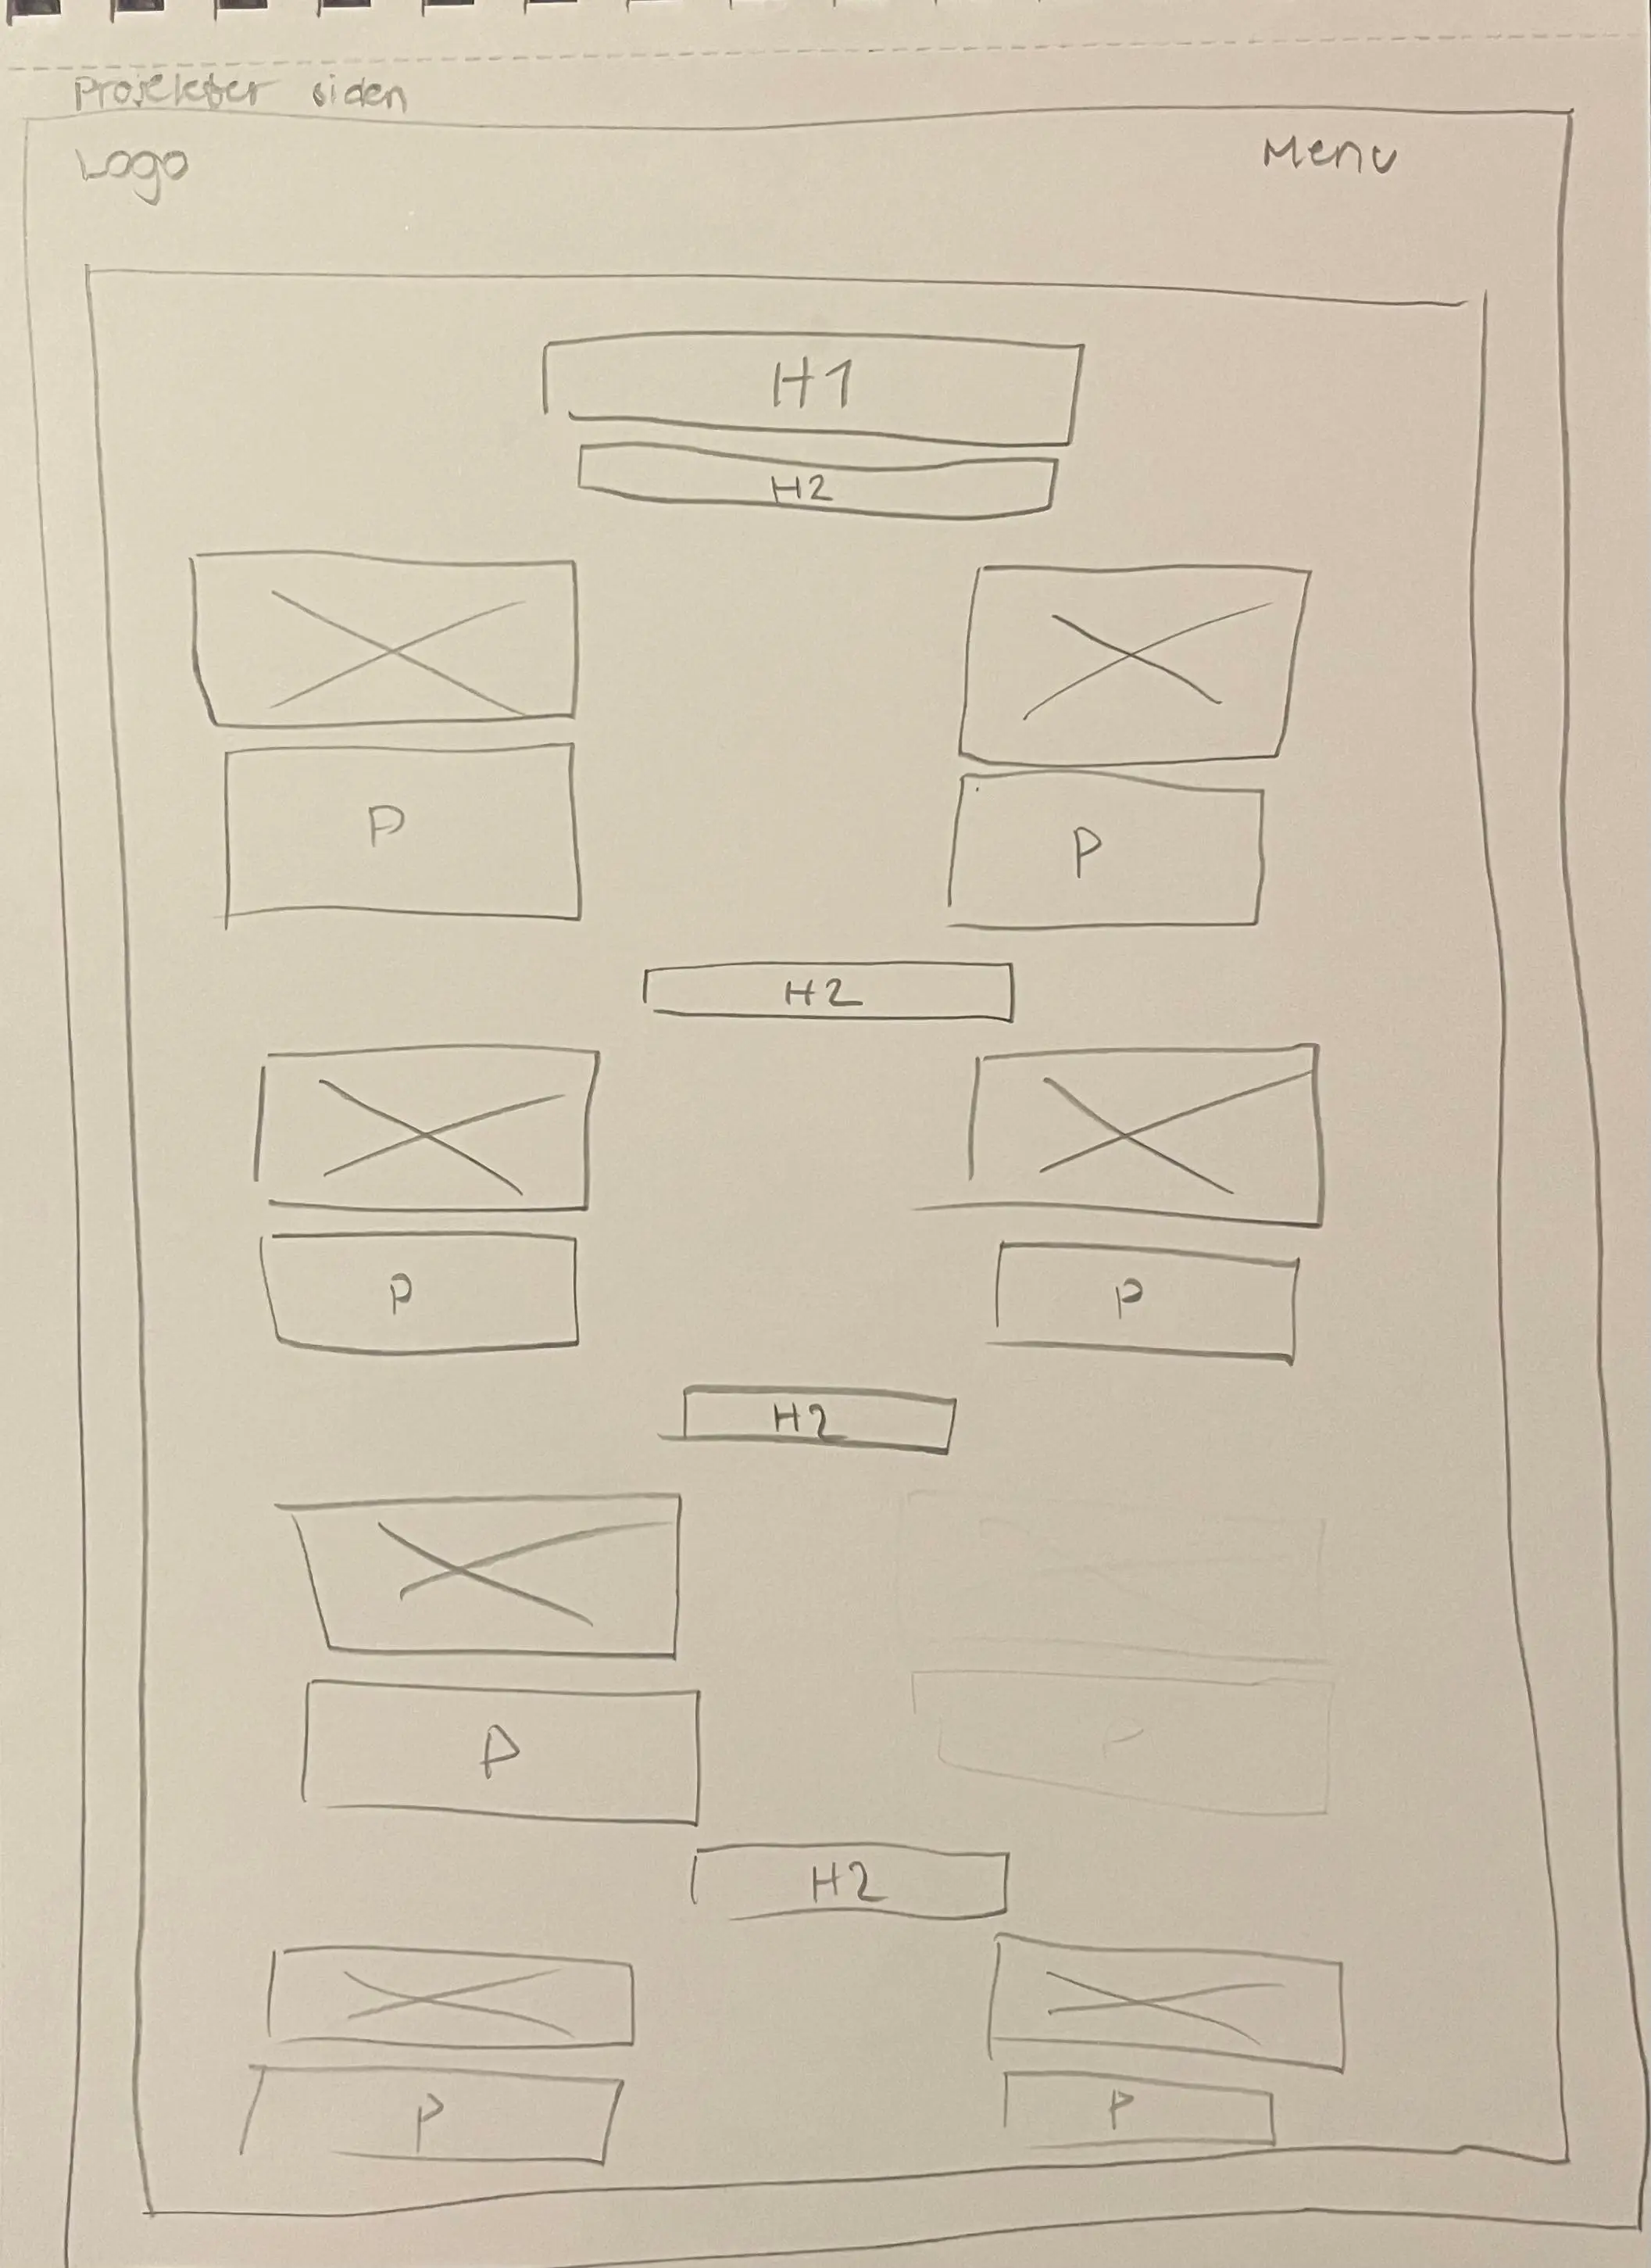 Projekter siden
Logo Menu
H1
H2
P P
H2
P P
H2
P P
H2
P P